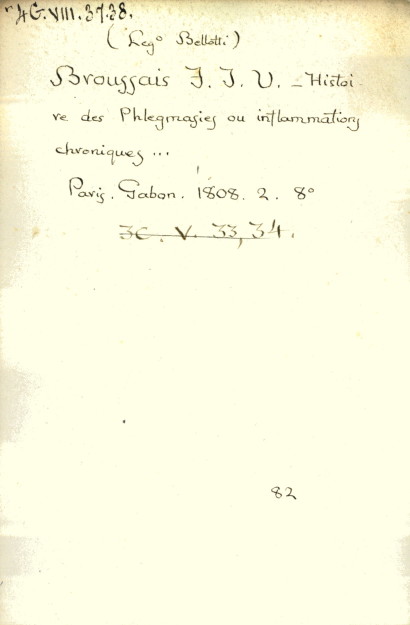 4G.VIII.37.38.
(Leg° Bellotti)
Broussais J. J. V. _ Histoi
re des Phlegmasies ou inflammations
chroniques ...
Paris. Gabon. 1808. 2. 8°
3C. V. 33, 34.
82